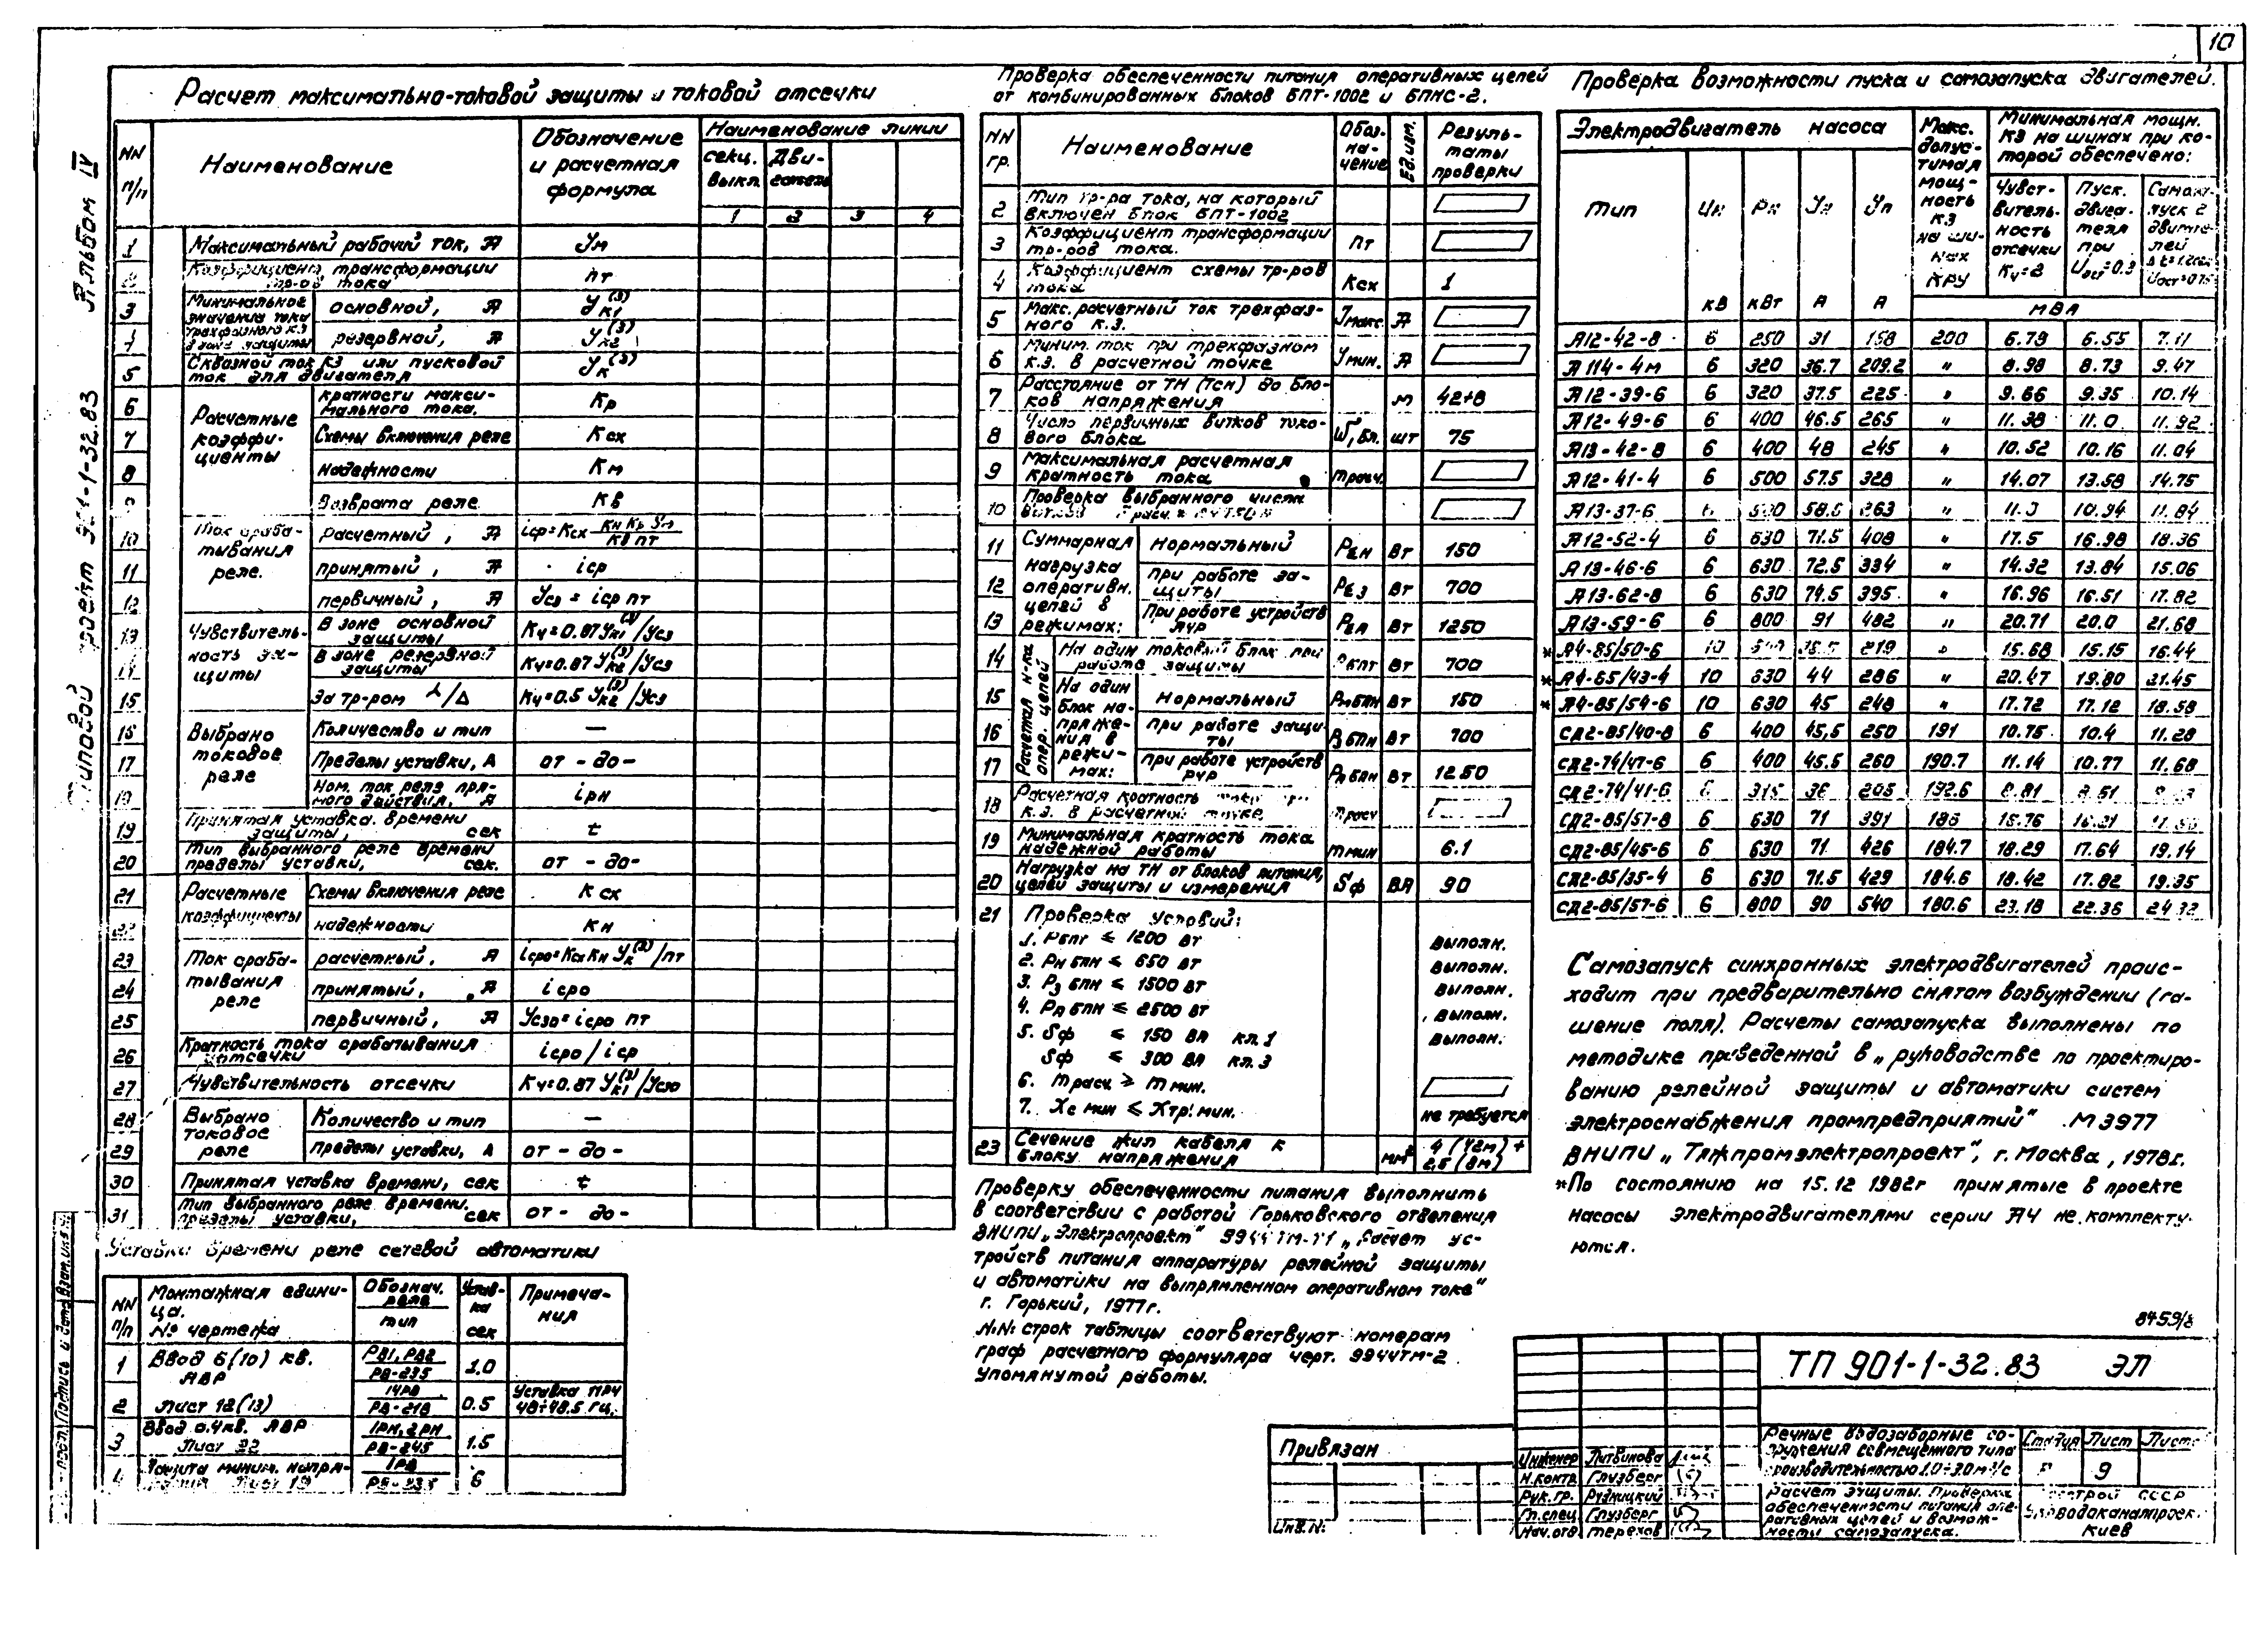 10
Альбом IV
Типовой проект 901-1-32.83
Расчет максимально-токовой защиты и токовой отсечки
NN п/п
Наименование
Обозначение и расчетная формула
Наименование линии
секц. выкл.
Двигатель
1 2 3 4
1 Максимальный рабочий ток, А Ум
2 Коэффициент трансформации тр-ов тока nт
Минимальное значение тока трехфазного к.з. в зоне защиты
3 основной, А У(3)к1
4 резервной, А У(3)к2
5 Сквозной ток КЗ или пусковой ток для двигателя У(3)к
Расчетные коэффициенты
6 кратности максимального тока. Кр
7 Схемы включения реле Ксх
8 надежности Км
9 Возврата реле Кв
Ток срабатывания реле.
10 расчетный, А iср=Ксх Кн Кр Ум / Кв nт
11 принятый, А iср
12 первичный, А Усз = iср nт
Чувствительность защиты
13 В зоне основной защиты Кч=0.87 У(3)к1/Усз
14 В зоне резервной защиты Кч=0.87 У(3)к2/Усз
15 За тр-ром ⅄/Δ Кч=0.5 У(3)к2/Усз
Выбрано токовое реле
16 Количество и тип —
17 Пределы уставки, А от - до-
18 Ном. ток реле прямого действия, А iрн
19 Принятая уставка времени защиты, сек t
20 Тип выбранного реле времени пределы уставки, сек. от - до-
Расчетные коэффициенты
21 Схемы включения реле К сх
22 надежности Кн
Ток срабатывания реле
23 расчетный, А iсро=Ксх Кн У(3)к/nт
24 принятый, А iсро
25 первичный, А Усзо=iсро nт
26 Кратность тока срабатывания отсечки iсро/iср
27 Чувствительность отсечки Кч=0.87 У(3)к1/Усзо
Выбрано токовое реле
28 Количество и тип —
29 Пределы уставки, А от - до -
30 Принятая уставка времени, сек t
31 Тип выбранного реле времени. пределы уставки, сек от - до-
Уставки времени реле сетевой автоматики
NN п/п
Монтажная единица. № чертежа
Обознач. реле тип
Уставка сек
Примечания
1 Ввод 6(10) кв. АВР РВ1, РВ2 РВ-235 1.0
2 Лист 12(13) 14РВ РВ-218 0.5 Уставка АРЧ 48÷48.5 гц.
3 Ввод 0.4кв. АВР Лист 22 1РН, 2РН РВ-245 1.5
4 Защита миним. напряжения Лист 19 1РВ РВ-235 6
Проверка обеспеченности питания оперативных цепей
от комбинированных блоков БПТ-1002 и БПНС-2.
NN гр.
Наименование
Обозначение
Ед.изм.
Результаты проверки
2 Тип тр-ра тока, на который включен блок БПТ-1002
3 Коэффициент трансформации тр-ров тока. nт
4 Коэффициент схемы тр-ров тока Ксх 1
5 Макс. расчетный ток трехфазного к.з. Умакс. А
6 Миним. ток при трехфазном к.з. в расчетной точке Умин. А
7 Расстояние от ТН (ТСН) до блоков напряжения м 42+8
8 Число первичных витков токового блока W1бл. шт 75
9 Максимальная расчетная кратность тока mрасч.
10 Проверка выбранного числа витков
Суммарная нагрузка оперативн. цепей в режимах:
11 нормальный РΣн Вт 150
12 при работе защиты РΣз Вт 700
13 При работе устройств АЧР РΣА Вт 1250
Расчетная н-ка опер. цепей
14 На один токовый блок при работе защиты Рбпт Вт 700
На один блок напряжения в режимах:
15 нормальный Рн бпн Вт 150
16 при работе защиты Рз бпн Вт 700
17 при работе устройств АЧР РА бпн Вт 1250
18 Расчетная кратность тока при к.з. в расчетной точке mрасч
19 Минимальная кратность тока надежной работы mмин 6.1
20 Нагрузка на ТН от блоков питания, цепей защиты и измерения Sф ВА 90
21 Проверка условий:
1. Рбпт ≤ 1200 вт выполн.
2. Рн бпн ≤ 650 вт выполн.
3. Рз бпн ≤ 1500 вт выполн.
4. РА бпн ≤ 2500 вт выполн.
5. Sф ≤ 150 ВА кл.1 выполн.
Sф ≤ 300 ВА кл.3
6. mрасч ≥ mмин.
7. Хс мин ≤ Хтр. мин. не требуется
23 Сечение жил кабеля к блоку напряжения мм² 4 (42м) + 2,5 (8м)
Проверку обеспеченности питания выполнить
в соответствии с работой Горьковского отделения
ВНИПИ „Электропроект" 9944тм-т1 „Расчет ус-
тройств питания аппаратуры релейной защиты
и автоматики на выпрямленном оперативном токе"
г. Горький, 1977г.
N.N: строк таблицы соответствуют номерам
граф расчетного формуляра черт. 9944тм-2
Упомянутой работы.
Проверка возможности пуска и самозапуска двигателей.
Электродвигатель насоса
Макс. допустимая мощность к.з на шинах КРУ
Минимальная мощн. КЗ на шинах при которой обеспечено:
Тип Uн Рн Ун Уп
Чувствительность отсечки Кч=2
Пуск. двигателя при
Самозапуск 2 двигателей
кВ кВт А А МВА
А12-42-8 6 250 31 158 200 6.79 6.55 7.11
А114-4м 6 320 36.7 209.2 " 8.98 8.73 9.47
А12-39-6 6 320 37.5 225 " 9.66 9.35 10.14
А12-49-6 6 400 46.5 265 " 11.38 11.0 11.92
А13-42-8 6 400 48 245 " 10.52 10.16 11.04
А12-41-4 6 500 57.5 328 " 14.07 13.58 14.75
А13-37-6 6 500 58.5 263 " 10.94 11.84
А12-52-4 6 630 71.5 408 " 17.5 16.98 18.36
А13-46-6 6 630 72.5 334 " 14.32 13.84 15.06
А13-62-8 6 630 79.5 395 " 16.96 16.51 17.82
А13-59-6 6 800 91 482 " 20.71 20.0 21.68
* А4-85/50-6 10 219 " 15.68 15.15 16.44
* А4-85/43-4 10 630 44 286 " 20.47 19.80 21.45
* А4-85/54-6 10 630 45 248 " 17.72 17.12 18.58
СД2-85/40-8 6 400 45,5 250 191 10.75 10.4 11.28
СД2-74/47-6 6 400 45.5 260 190.7 11.14 10.77 11.68
СД2-74/41-6 6 315 36 205 192.6 8.81 8.51
СД2-85/57-8 6 630 71 391 186
СД2-85/45-6 6 630 71 426 184.7 18.29 17.64 19.14
СД2-85/35-4 6 630 71.5 429 184.6 18.42 17.82 19.35
СД2-85/57-6 6 800 90 540 180.6 23.18 22.36 24.32
Самозапуск синхронных электродвигателей проис-
ходит при предварительно снятом возбуждении (га-
шение поля). Расчеты самозапуска выполнены по
методике приведенной в „ руководстве по проектиро-
ванию релейной защиты и автоматики систем
электроснабжения промпредприятий" М3977
ВНИПИ „ Тяжпромэлектропроект", г. Москва, 1978г.
*По состоянию на 15.12 1982г принятые в проекте
насосы электродвигателями серии А4 не комплекту-
ются.
8459/8
ТП 901-1-32.83 ЭЛ
Привязан
Инв. N:
Инженер Литвинова
Н.контр. Глузберг
Рук. гр. Рудницкий
Гл. спец. Глузберг
Нач. отд. Терехов
Речные водозаборные со-
оружения совмещенного типа
производительностью 1.0÷3.0м³/с
Стадия Лист Листов
Р 9
Расчет защиты. Проверка
обеспеченности питания опе-
ративных цепей и возмож-
ности самозапуска.
Госстрой СССР
Укрводоканалпроект
Киев
Подпись и дата Взам. инв. №